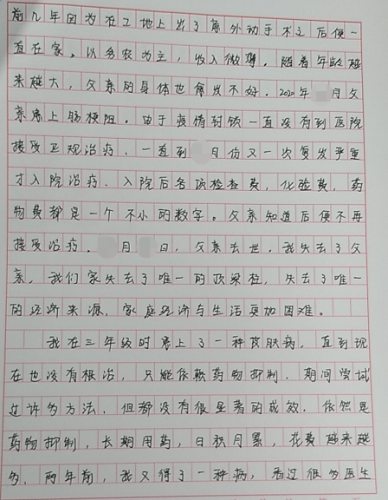 前几年因为在工地上出了意外动手不了后便一
直在家。以务农为主，收入微薄。随着年龄越
来越大，父亲的身体也愈发不好，202年 月父
亲患上肠梗阻。由于疫情耽误一直没有到医院
接受正规治疗，一直到 月份又一次复发严重
才入院治疗，入院后各项检查费，化验费，药
物费都是一个不小的数字。父亲知道后便不再
接受治疗。 月 日，父亲去世，我失去了父
亲，我们家失去了唯一的顶梁柱，失去了唯一
的经济来源，家庭经济与生活更加困难。
我在三年级时患上了一种皮肤病，直到现
在也没有根治，只能依赖药物抑制，期间尝试
过许多方法，但都没有很显著的成效，依然是
药物抑制，长期用药，日积月累，花费越来越
多，两年前，我又得了一种病，看过很多医生